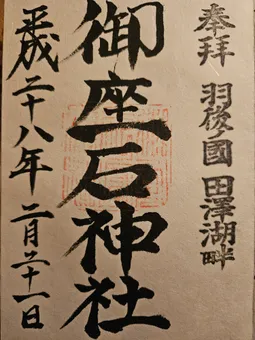 奉拝 羽後ノ國 田澤湖畔
御座石神社
平成二十八年 二月二十一日